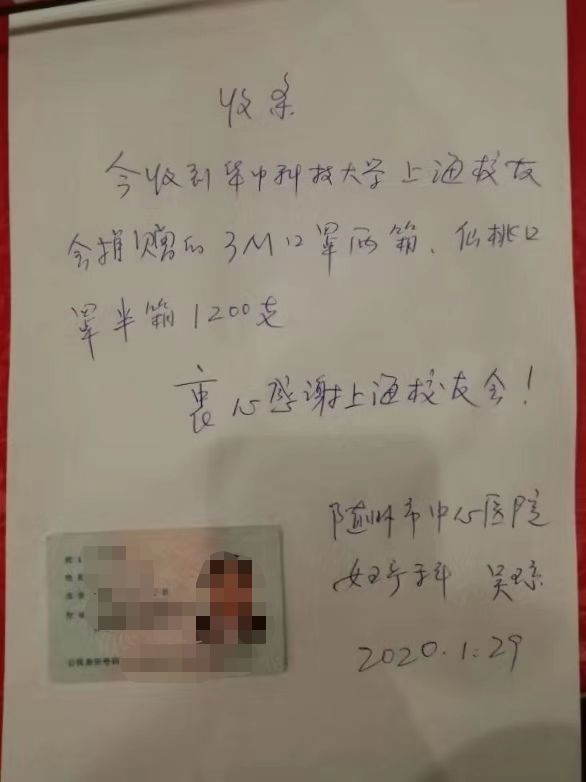 收条
今收到华中科技大学上海校友
会捐赠的3M口罩两箱、仙桃口
罩半箱1200支
衷心感谢上海校友会!
随州市中心医院
妇产科 吴琼
2020.1.29
公民身份号码